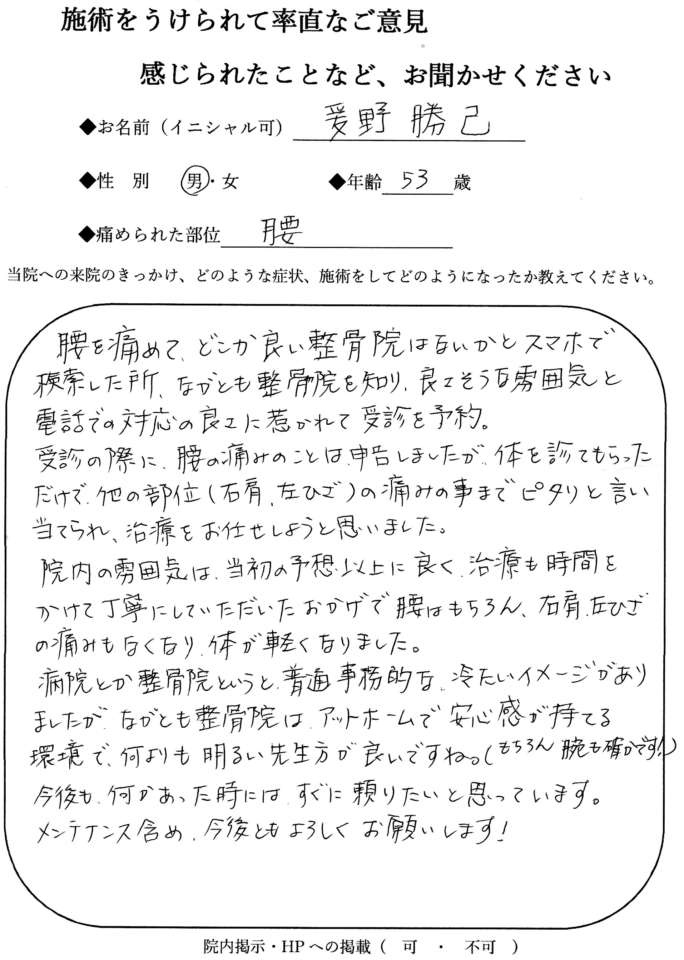 施術をうけられて率直なご意見
感じられたことなど、お聞かせください
◆お名前（イニシャル可） 爰野 勝己
◆性 別 男・女 ◆年齢 53 歳
◆痛められた部位 腰
当院への来院のきっかけ、どのような症状、施術をしてどのようになったか教えてください。
腰を痛めて、どこか良い整骨院はないかとスマホで
検索した所、ながとも整骨院を知り、良さそうな雰囲気と
電話での対応の良さに惹かれて受診を予約。
受診の際に、腰の痛みのことは申告しましたが、体を診てもらった
だけで、他の部位（右肩、左ひざ）の痛みの事までピタリと言い
当てられ、治療をお任せしようと思いました。
院内の雰囲気は、当初の予想以上に良く、治療も時間を
かけて丁寧にしていただいたおかげで腰はもちろん、右肩、左ひざ
の痛みもなくなり、体が軽くなりました。
病院とか整骨院というと、普通事務的な、冷たいイメージがあり
ましたが、ながとも整骨院は、アットホームで安心感が持てる
環境で、何よりも明るい先生方が良いですね。（もちろん腕も確かです！）
今後も、何かあった時には、すぐに頼りたいと思っています。
メンテナンス含め、今後ともよろしくお願いします！
院内掲示・HPへの掲載（ 可 ・ 不可 ）